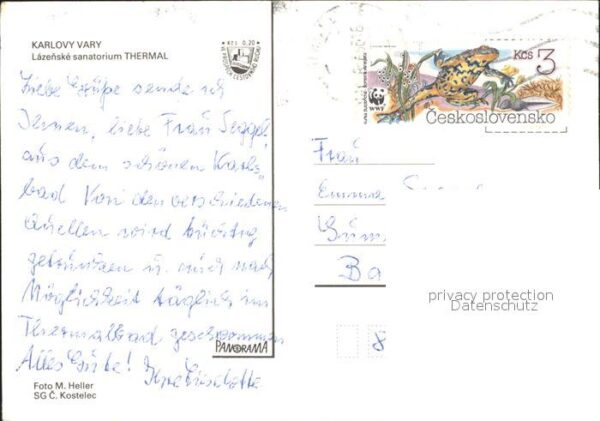 KARLOVY VARY
Lázeňské sanatorium THERMAL
Kčs 0,20
Liebe Grüße sende ich
Ihnen, liebe Frau
aus dem schönen Karls-
bad Von den verschiedenen
Quellen wird
getrunken u. auch nach
Möglichkeit täglich im
Thermalbad geschwommen
Alles Gute!
PANORAMA
Foto M. Heller
SG Č. Kostelec
Kčs 3
WWF
Československo
Frau
Emma
Ba
privacy protection
Datenschutz
8